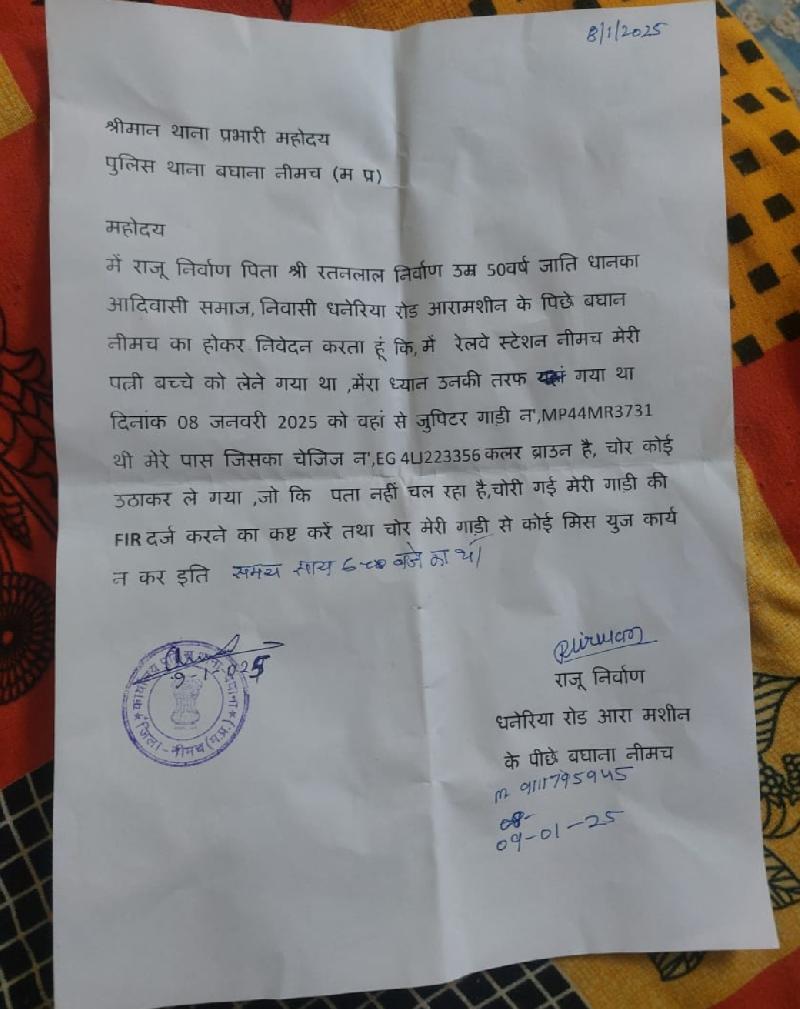 8/1/2025
श्रीमान थाना प्रभारी महोदय
पुलिस थाना बघाना नीमच (म प्र)
महोदय
में राजू निर्वाण पिता श्री रतनलाल निर्वाण उम्र 50वर्ष जाति धानका
आदिवासी समाज, निवासी धनेरिया रोड आरामशीन के पिछे बघान
नीमच का होकर निवेदन करता हूं कि,में रेलवे स्टेशन नीमच मेरी
पत्नी बच्चे को लेने गया था ,मेंरा ध्यान उनकी तरफ गया था
दिनांक 08 जनवरी 2025 को वहां से जुपिटर गाड़ी न',MP44MR3731
थी मेरे पास जिसका चेजिज न',EG4LJ223356 कलर ब्राउन है, चोर कोई
उठाकर ले गया ,जो कि पता नहीं चल रहा है,चोरी गई मेरी गाड़ी की
FIR दर्ज करने का कष्ट करें तथा चोर मेरी गाड़ी से कोई मिस युज कार्य
न कर इति समय साय 6-00 बजे का था
9-1-2025
कार्यालय पुलिस थाना बघाना
जिला-नीमच (म.प्र.)
RNirwan
राजू निर्वाण
धनेरिया रोड आरा मशीन
के पीछे बघाना नीमच
m 9111795945
09-01-25